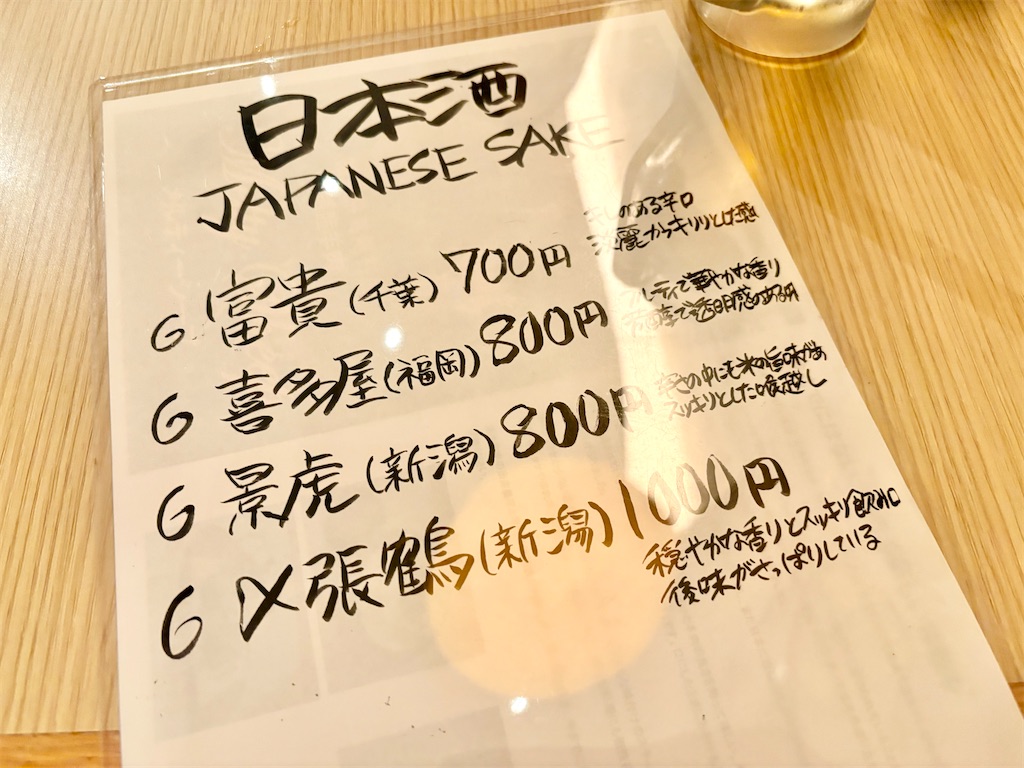 日本酒
JAPANESE SAKE
G 富貴 (千葉) 700円
のある辛口
淡麗
G 喜多屋 (福岡) 800円
華やかな香り
透明感のある
G 景虎 (新潟) 800円
の中にも米の旨味があ
スッキリとした喉越し
G 〆張鶴 (新潟) 1000円
穏やかな香りとスッキリ飲み口
後味がさっぱりしている